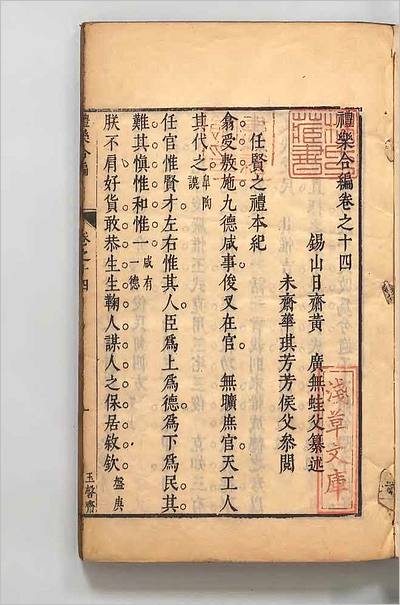 禮樂合編卷之十四
錫山日齋黃 廣無蛙父纂述
未齋華琪芳芳侯父參閲
任賢之禮本紀
翕受敷施九德咸事俊乂在官 無曠庶官天工人
其代之 皐陶謨
任官惟賢才左右惟其人臣爲上爲德爲下爲民其
難其愼惟和惟一 咸有一德
朕不肩好貨敢恭生生鞠人謀人之保居敘欽 盤庚
禮樂合編 卷之十四 一 玉磬齋
淺草文庫